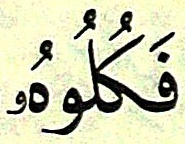 فَكُلُوهُ